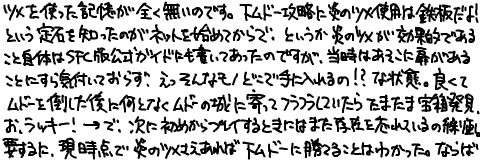 ツメを使った記憶が全く無いのです。下ムドー攻略に炎のツメ使用は鉄板だよ!
という定石を知ったのがネットを始めてからで、というか炎のツメが効果的である
こと自体はSFC版公式ガイドにも書いてあったのですが、当時はあそこに扉がある
ことにすら気付いておらず、えっそんなモノどこで手に入れるの!?な状態。良くて
ムドーを倒した後に何となくムドの城に寄ってフラフラしていたらたまたま宝箱発見、
お、ラッキー!→で、次に初めからプレイするときにはまた存在を忘れているの繰り返し。
要するに、現時点で炎のツメさえあれば下ムドーに勝てることはわかった。ならば